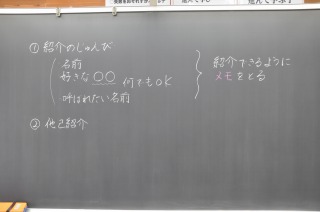 ① 紹介のじゅんび
名前
好きな○○ 何でもok
呼ばれたい名前
紹介できるように
メモをとる
② 他己紹介